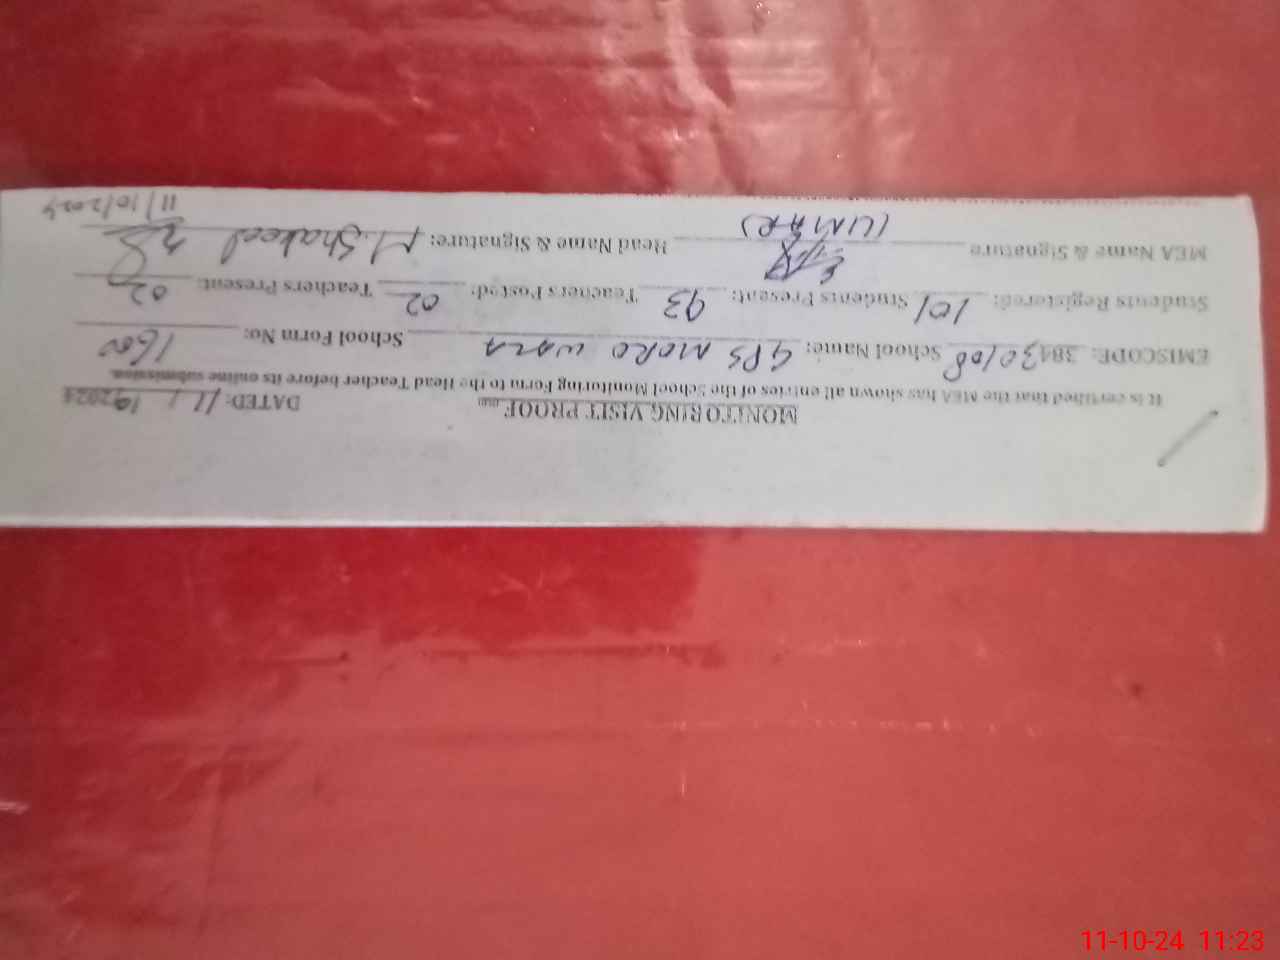 MONITORING VISIT PROOF
DATED: 11 / 10 /2024
It is certified that the MEA has shown all entries of the School Monitoring Form to the Head Teacher before its online submission.
EMISCODE: 38430108 School Name: GPS MORO WALA School Form No: 1600
Students Registered: 101 Students Present: 93 Teachers Posted: 02 Teachers Present: 02
MEA Name & Signature (UMAR) Head Name & Signature: M. Shakeel
11/10/2024
11-10-24 11:23